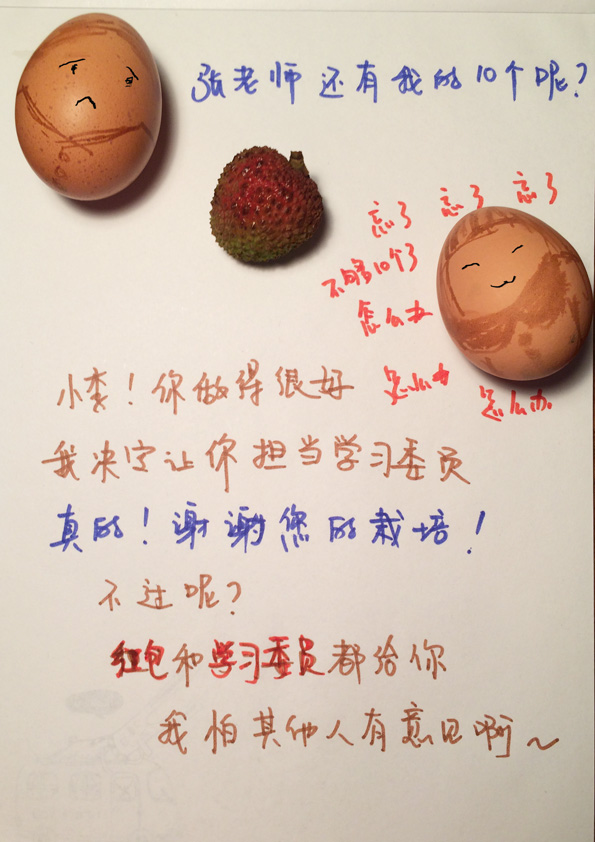 张老师还有我的10个呢？
忘了 忘了 忘了
不够10个了
怎么办
怎么办
怎么办
小李！你做得很好
我决定让你担当学习委员
真的！谢谢您的栽培！
不过呢？
红包和学习委员都给你
我怕其他人有意见啊～